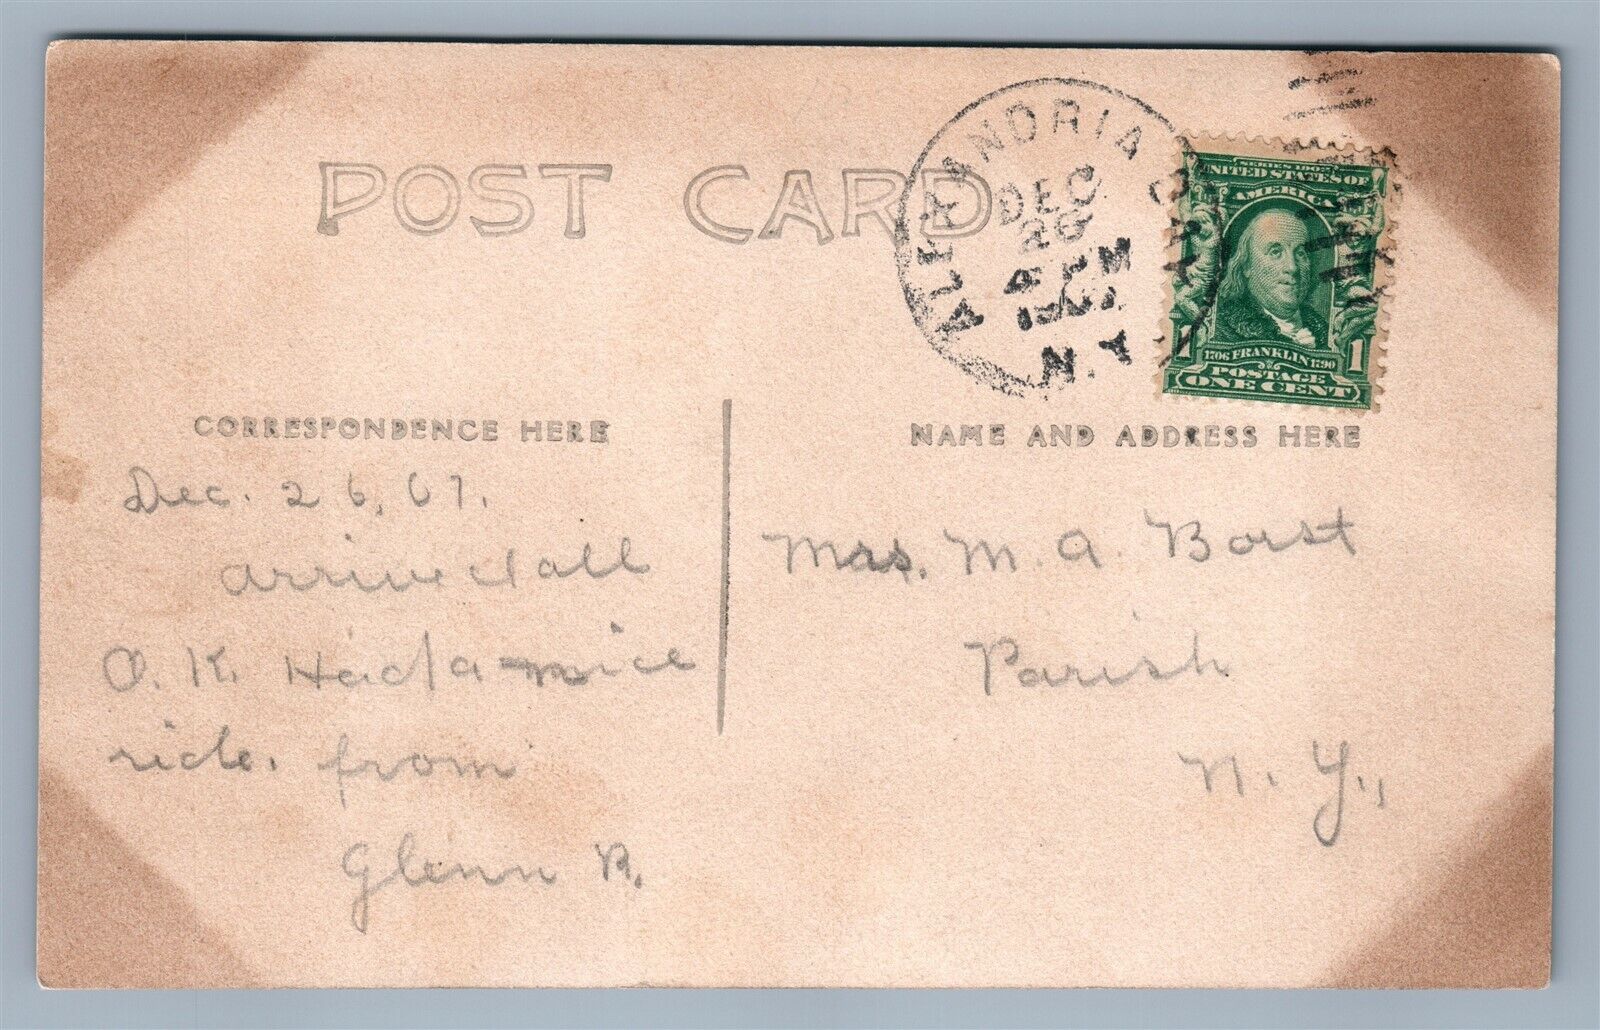 POST CARD
ALEXANDRIA BAY
DEC
26
4 PM
1907
N.Y.
UNITED STATES OF
AMERICA
1706 FRANKLIN 1790
1 1
POSTAGE
ONE CENT
CORRESPONDENCE HERE
NAME AND ADDRESS HERE
Dec. 26, 07.
arrived all
O. K. Had a nice
ride. from
Glenn B.
Mrs. M. A. Borst
Parish
N. Y.,